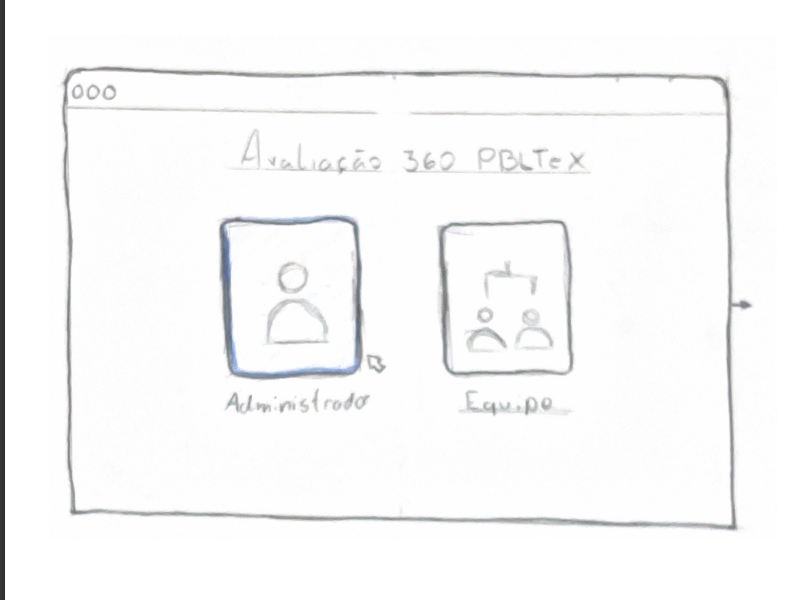 Avaliação 360 PBLTeX
Administrador
Equipe